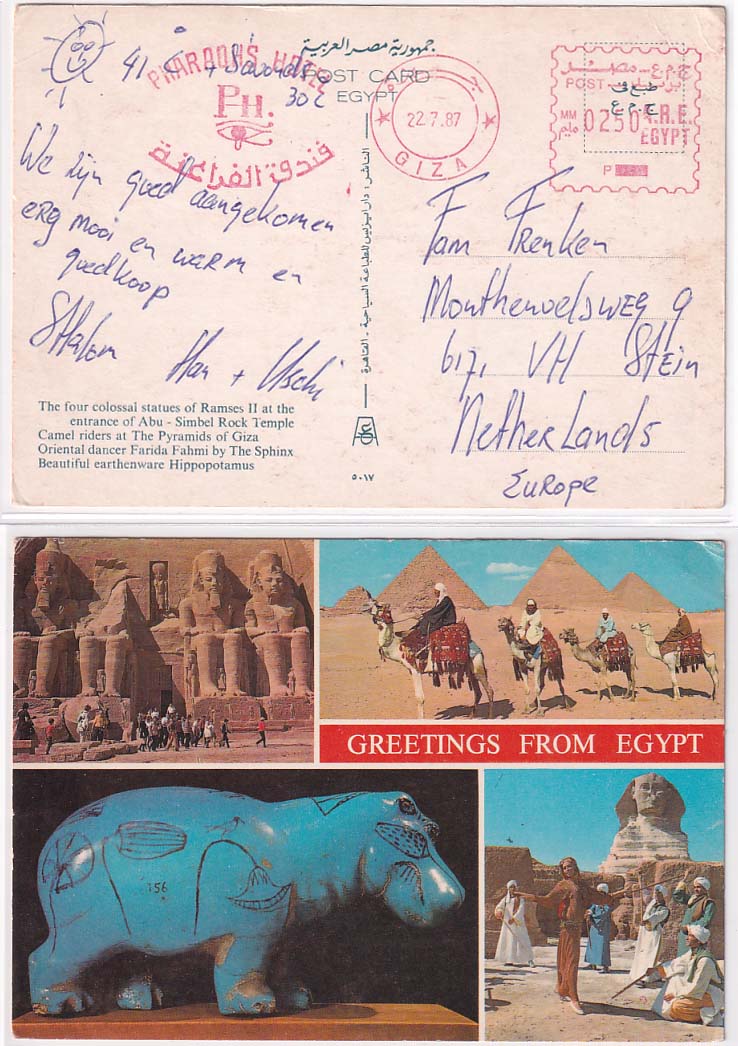 جمهورية مصر العربية
POST CARD
EGYPT
PHARAOH'S HOTEL
PH.
فندق الفراعنة
41 c + 's avonds
30 c
We zijn goed aangekomen
erg mooi en warm en
goedkoop
SHalom Han + Uschi
The four colossal statues of Ramses II at the
entrance of Abu - Simbel Rock Temple
Camel riders at The Pyramids of Giza
Oriental dancer Farida Fahmi by The Sphinx
Beautiful earthenware Hippopotamus
٥٠١٧
22.7.87
GIZA
ج.م.ع - مصر
POST
طبع فى
ج.م.ع
MM
مليم
0250
A.R.E.
EGYPT
P
Fam Frenken
9
6171 VH Stein
NetherLands
Europe
GREETINGS FROM EGYPT
156